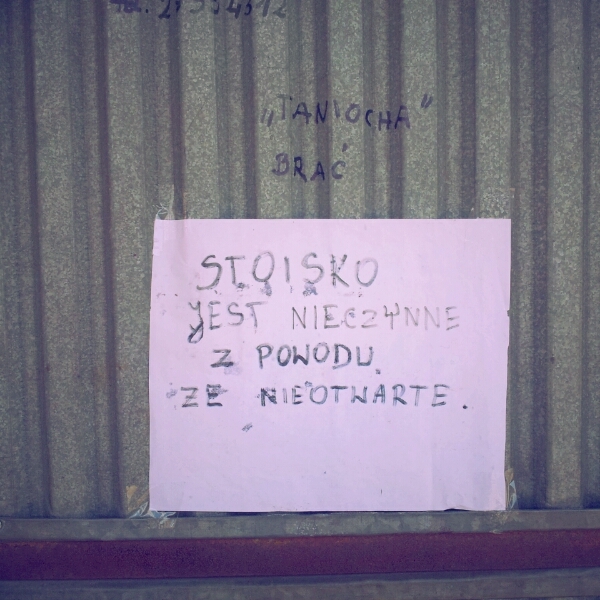 „TANIOCHA"
BRAĆ
STOISKO
JEST NIECZYNNE
Z POWODU
ZE NIEOTWARTE.